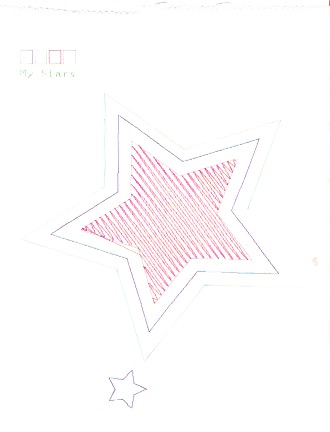 My Stars